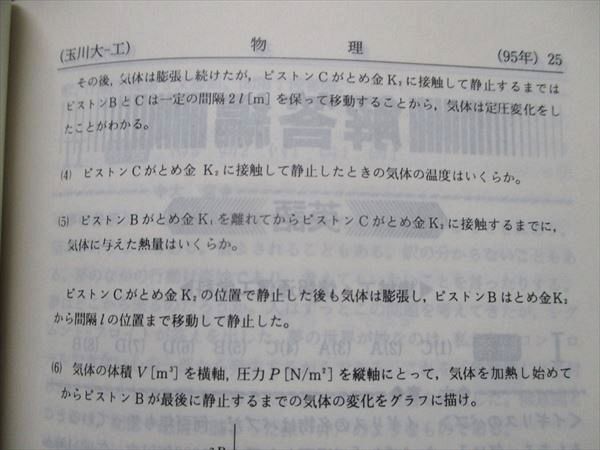 (玉川大-工) 物理 (95年) 25
その後,気体は膨張し続けたが,ピストンCがとめ金K₂に接触して静止するまでは
ピストンBとCは一定の間隔2l[m]を保って移動することから,気体は定圧変化をし
たことがわかる。
(4) ピストンCがとめ金 K₂に接触して静止したときの気体の温度はいくらか。
(5) ピストンBがとめ金K₁を離れてからピストンCがとめ金K₂に接触するまでに,
気体に与えた熱量はいくらか。
ピストンCがとめ金K₂の位置で静止した後も気体は膨張し,ピストンBはとめ金K₂
から間隔lの位置まで移動して静止した。
(6) 気体の体積V[m³]を横軸,圧力P[N/m²]を縦軸にとって,気体を加熱し始めて
からピストンBが最後に静止するまでの気体の変化をグラフに描け。